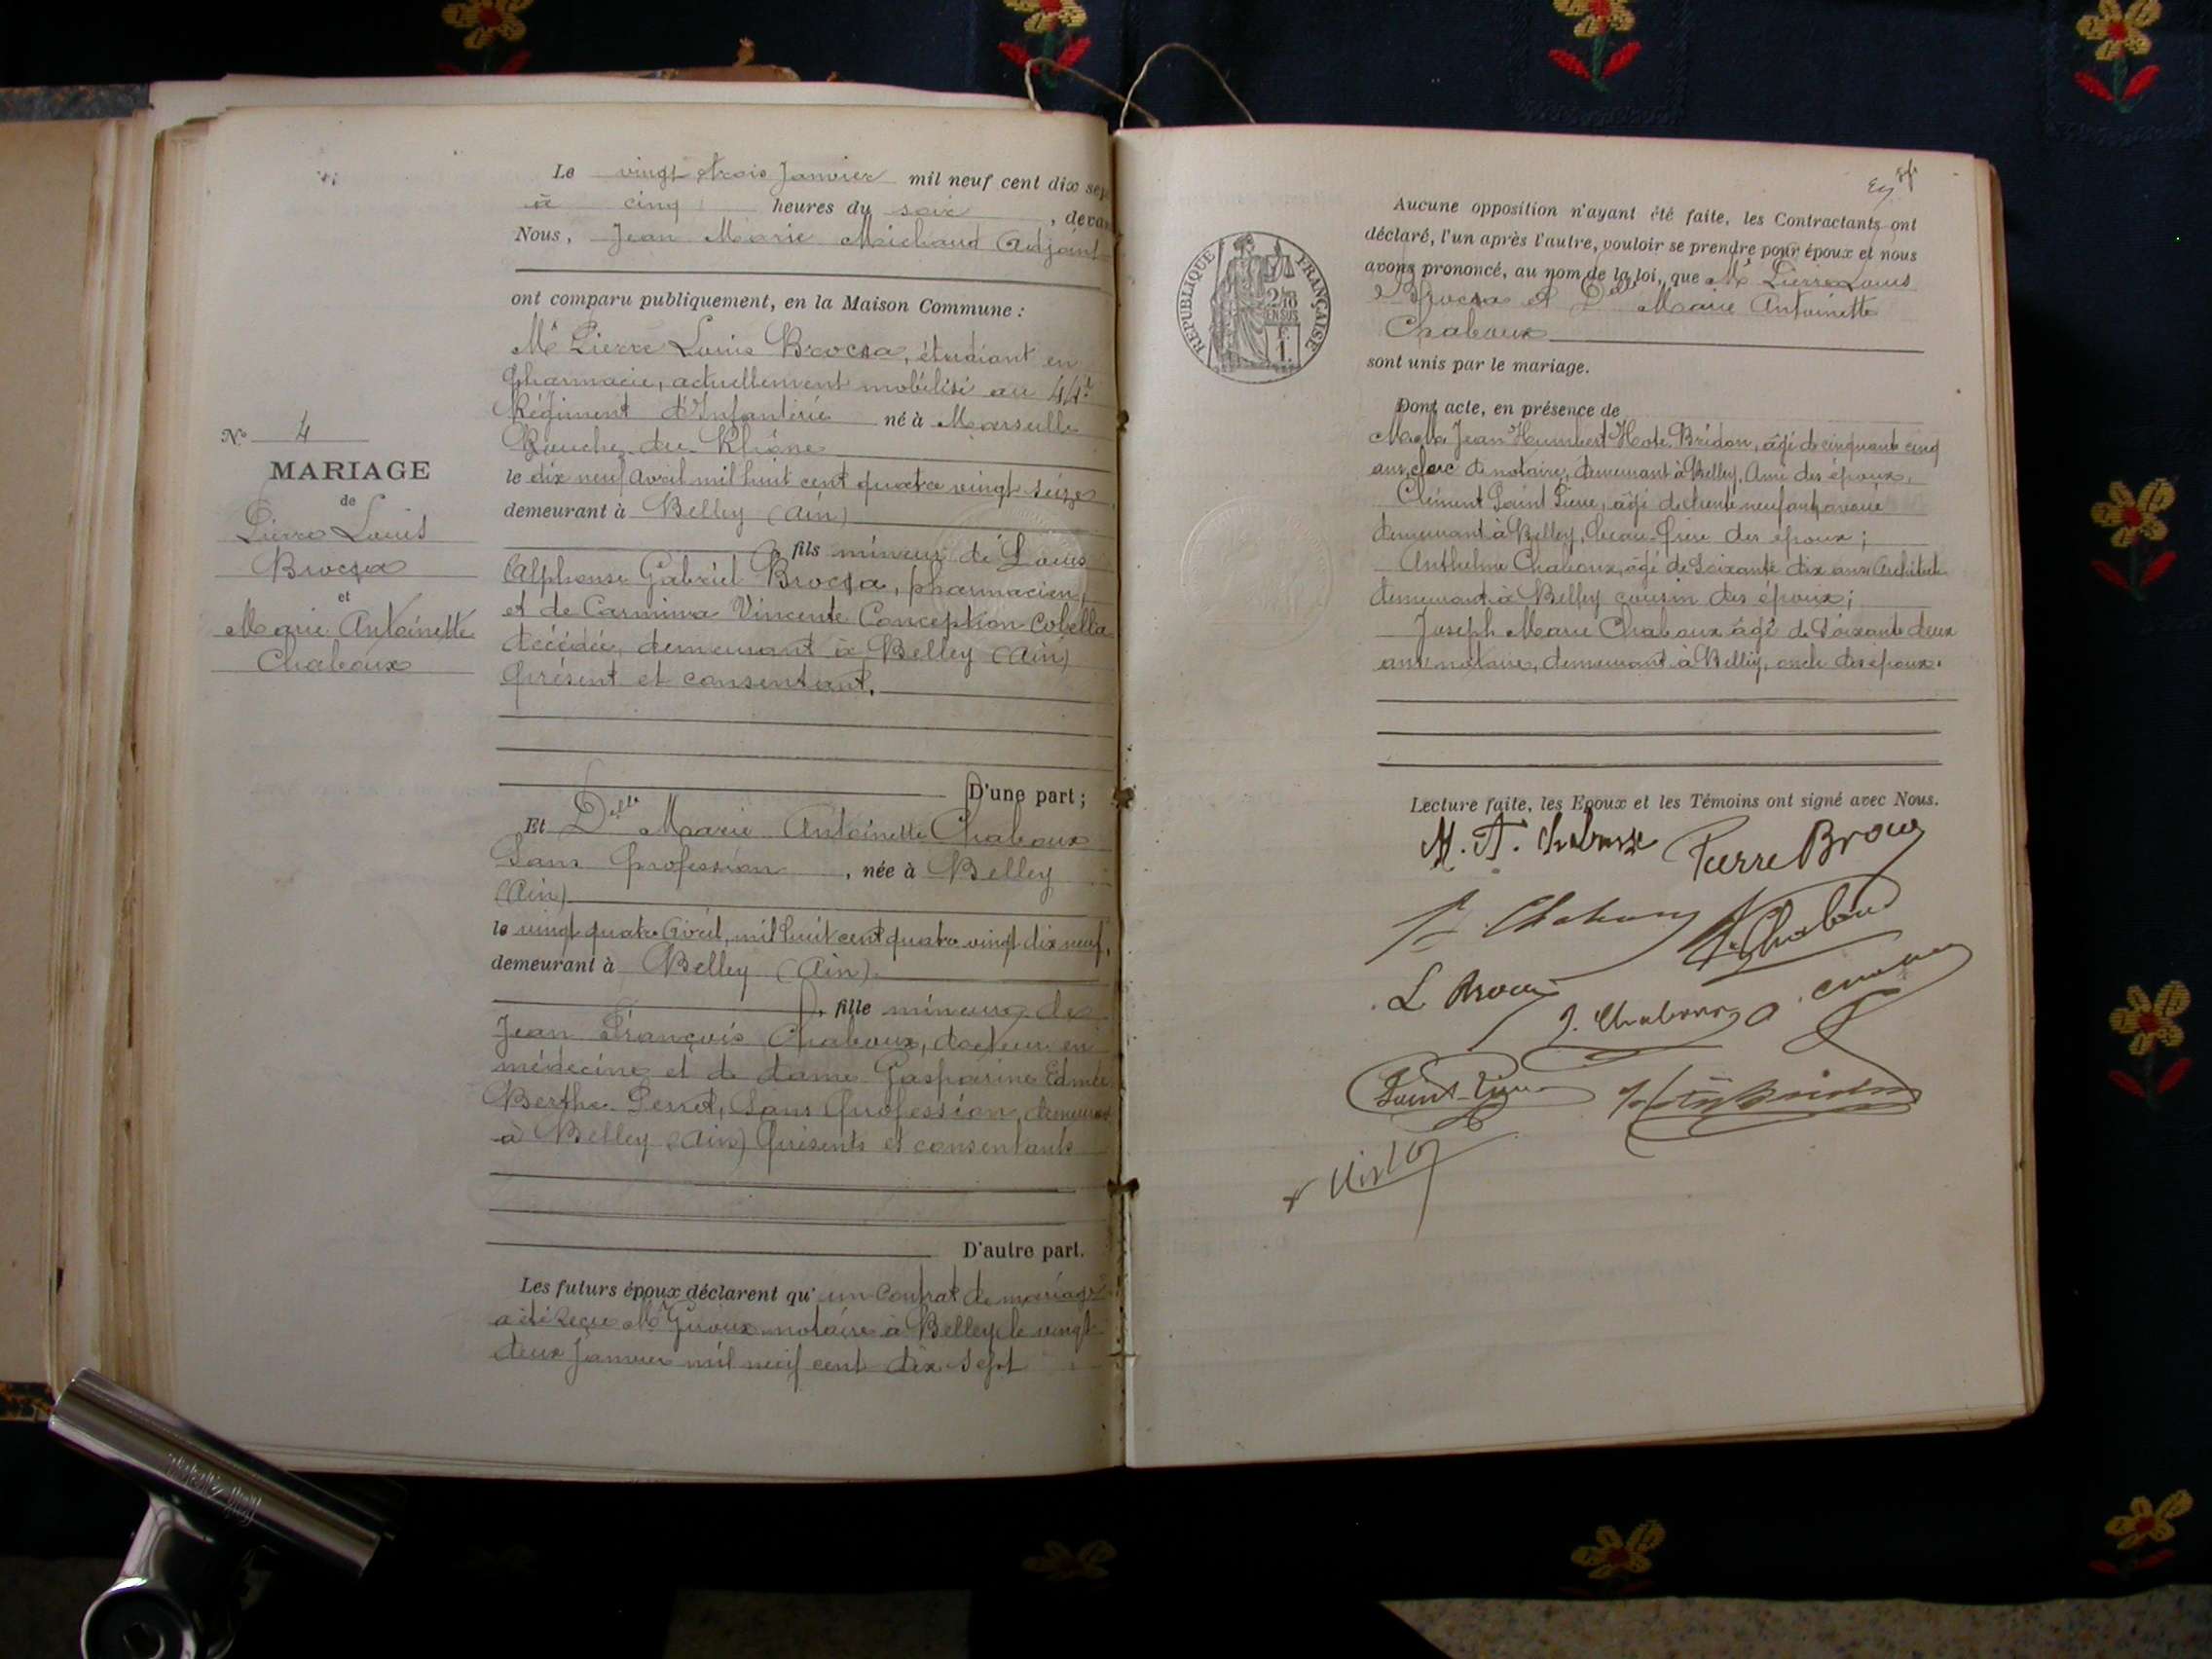 Le vingt trois Janvier mil neuf cent dix sep
à cinq heures du soir, devan
Nous, Jean Marie Michaud Adjoint
ont comparu publiquement, en la Maison Commune :
Mr Pierre Louis Brocsa, étudiant en
pharmacie, actuellement mobilisé au 44e
Régiment d'Infanterie né à Marseille
Bouche du Rhône
le dix neuf Avril mil huit cent quatre vingt seize
demeurant à Belley (Ain)
, fils mineur de Louis
Alphonse Gabriel Brocsa, pharmacien,
et de Carmina Vincente Conception Cobella
décédée, demeurant à Belley (Ain)
présent et consentant.
D'une part ;
Et Delle Marie Antoinette Chaboux
Sans profession, née à Belley
(Ain)
le vingt quatre Avril, mil huit cent quatre vingt dix neuf,
demeurant à Belley (Ain)
, fille mineure de
Jean François Chaboux, docteur en
médecine et de dame Gasparine Edmée
Berthe Perret, Sans profession, demeurant
à Belley (Ain) présents et consentants
D'autre part.
Les futurs époux déclarent qu'un Contrat de mariage
a été reçu Me Giroux notaire à Belley le vingt
deux Janvier mil neuf cent dix sept
No 4
MARIAGE
de
Pierre Louis
Brocsa
et
Marie Antoinette
Chaboux
RÉPUBLIQUE FRANÇAISE
2/10
EN SUS
1
Aucune opposition n'ayant été faite, les Contractants ont
déclaré, l'un après l'autre, vouloir se prendre pour époux et nous
avons prononcé, au nom de la loi, que Mr Pierre Louis
Brocsa et Delle Marie Antoinette
Chaboux
sont unis par le mariage.
Dont acte, en présence de
Jean Humbert Hote Bridon, âgé de cinquante cinq
ans, clerc de notaire, demeurant à Belley, Ami des époux,
Clément Saint Pierre, âgé de trente neuf ans, avoué
demeurant à Belley, beau-frère des époux ;
Anthelme Chaboux, âgé de Soixante dix ans Architecte
demeurant à Belley cousin des époux ;
Joseph Marie Chaboux âgé de Soixante deux
ans notaire, demeurant à Belley, oncle des époux.
Lecture faite, les Epoux et les Témoins ont signé avec Nous.
M. A. Chaboux Pierre Brocsa
Chaboux Chaboux
L Brocsa J. Chaboux
Saint-Pierre